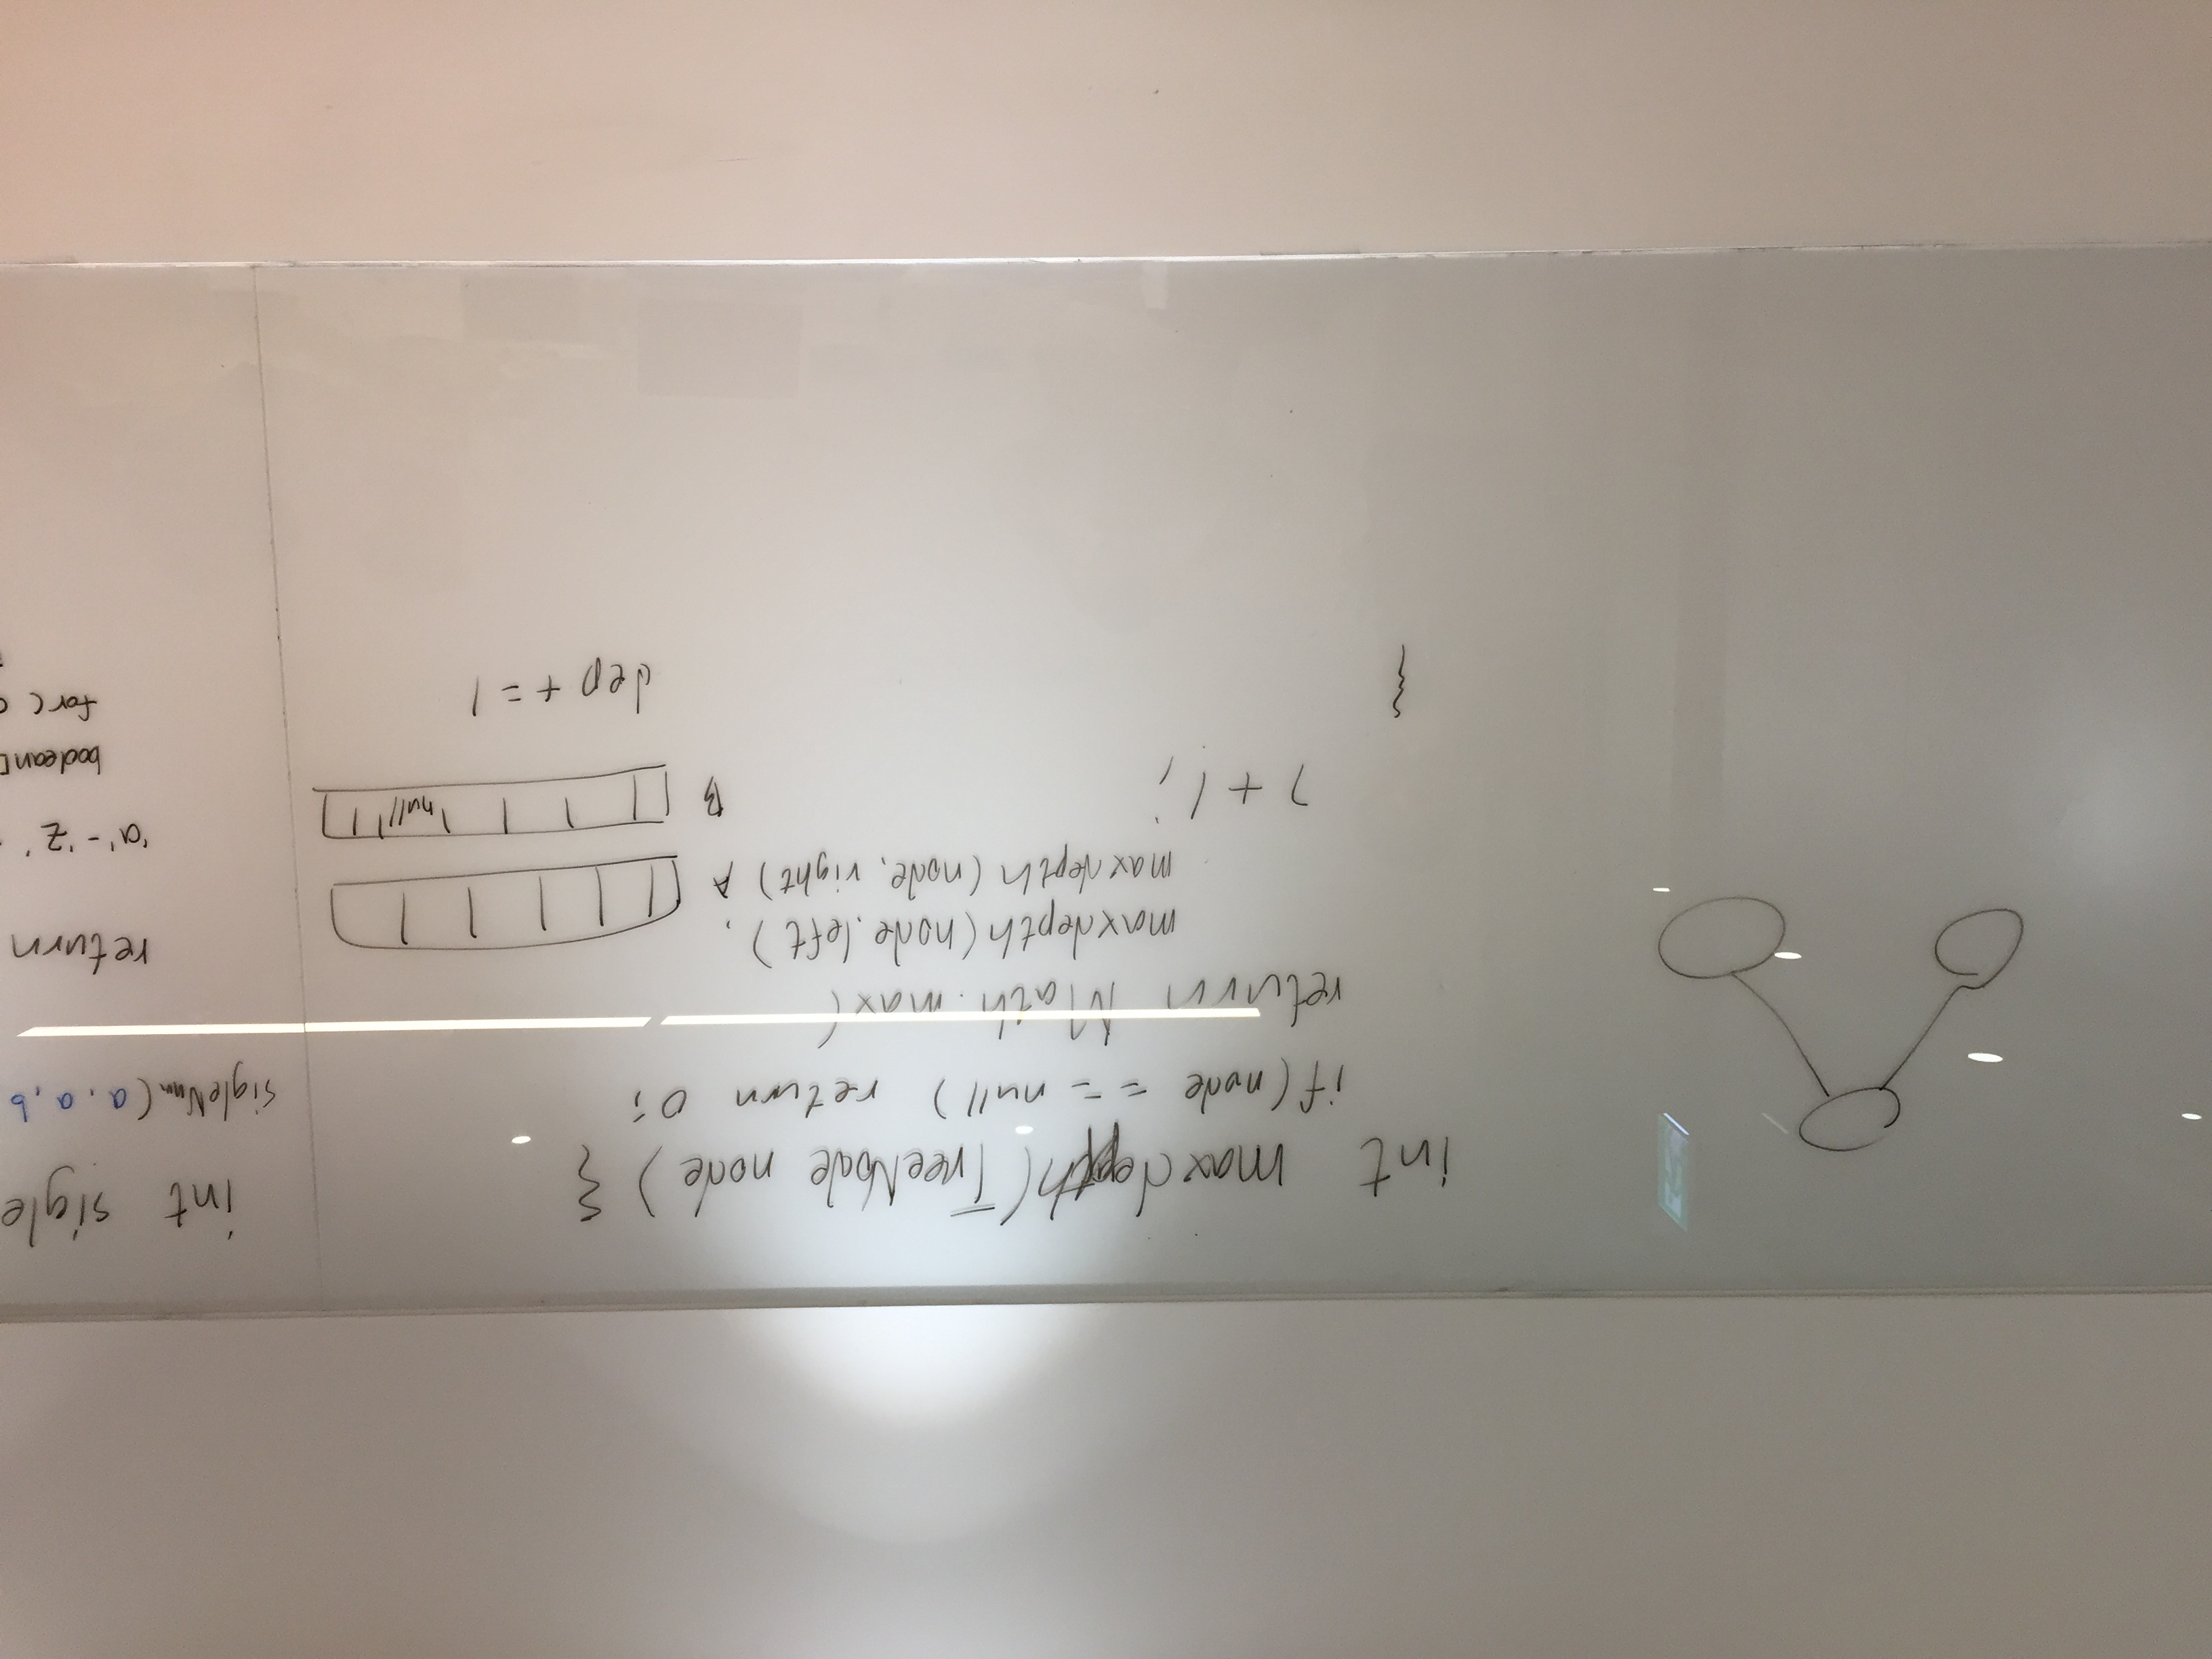 int maxdepth(TreeNode node) {
if(node == null) return 0;
return Math.max(
maxdepth(node.left),
maxdepth(node.right)
) + 1;
}
A
B null
dep += 1
int sigle
sigleNum(a, a, b
return
'a'-'z'
boolean[
for(